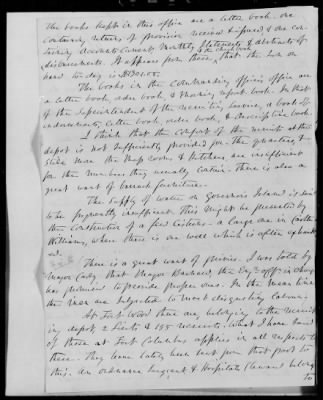 The books kept in this office are a letter book. One
containing returns of provisions received & issued & one con-
taining Accounts Current, Monthly Statements & abstracts of
disbursements. It appears from these, that the sum on
hand to day is
The books in the Commanding officers office are
a letter book, order book, & Morning report book. In that
of the Superintendent of the recruiting service, a book of
endorsements, letter book, order book, & descriptive book.
I think that the comfort of the recruits at this
depot is not sufficiently provided for. The quarters &
also the Mess rooms & Kitchens are insufficient
for the numbers they usually contain. There is also a
great want of barrack furniture.
The supply of water on Governors Island is said
to be frequently insufficient. This might be prevented by
the construction of a few cisterns. A large one in Castle
Williams, where there is one well which is often exhaust
ed.
There is a great want of privies. I was told by
Major Eady that Major Barnard the Engr. officer in charge
has promised to provide proper ones. In the mean time
the men are subjected to most disgusting labour.
At Fort Wood there are belonging to the recruit
ing depot, 2 Lieuts & 155 recruits. What I have said
of those at Fort Columbus applies in all respects to
these. They have lately been sent from that post to
this. An ordnance Sergeant & Hospital Steward belong
to